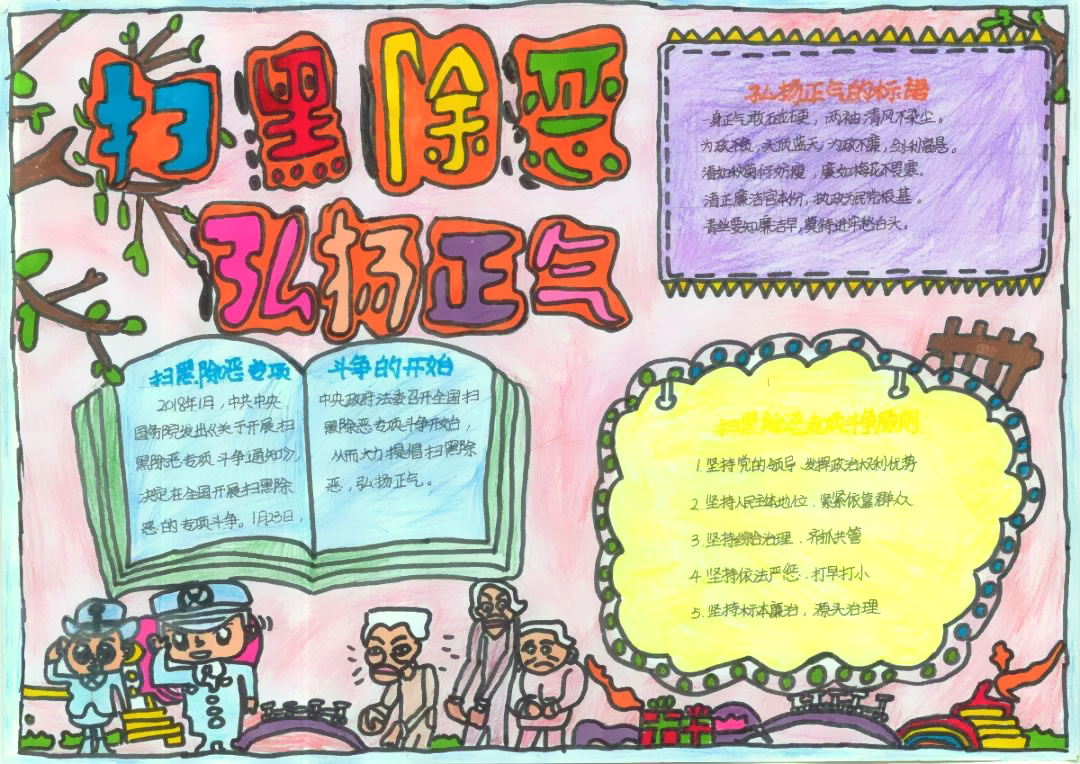 扫黑除恶
弘扬正气
弘扬正气的标语
一身正气敢碰硬，两袖清风不染尘。
为政不贪，头顶蓝天 为政不廉，剑利高悬。
清如秋菊何妨瘦，廉如梅花不畏寒。
清正廉洁官本份，执政为民党根基。
青丝要知廉洁早，莫待进牢愁白头。
扫黑除恶专项
2018年1月，中共中央、
国务院发出《关于开展扫
黑除恶专项斗争通知》，
决定在全国开展扫黑除
恶的专项斗争。1月23日，
斗争的开始
中央政府法委召开全国扫
黑除恶专项斗争开始，
从而大力提倡扫黑除
恶，弘扬正气。
扫黑除恶专项斗争原则
1.坚持党的领导、发挥政治权利优势
2.坚持人民主体地位、紧紧依靠群众
3.坚持综合治理、齐抓共管
4.坚持依法严惩、打早打小
5.坚持标本廉治，源头治理